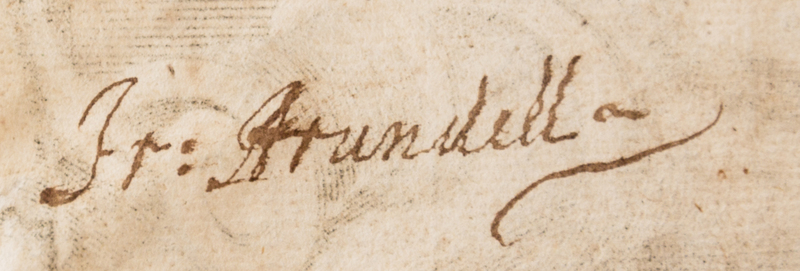 Fr: Arundell~